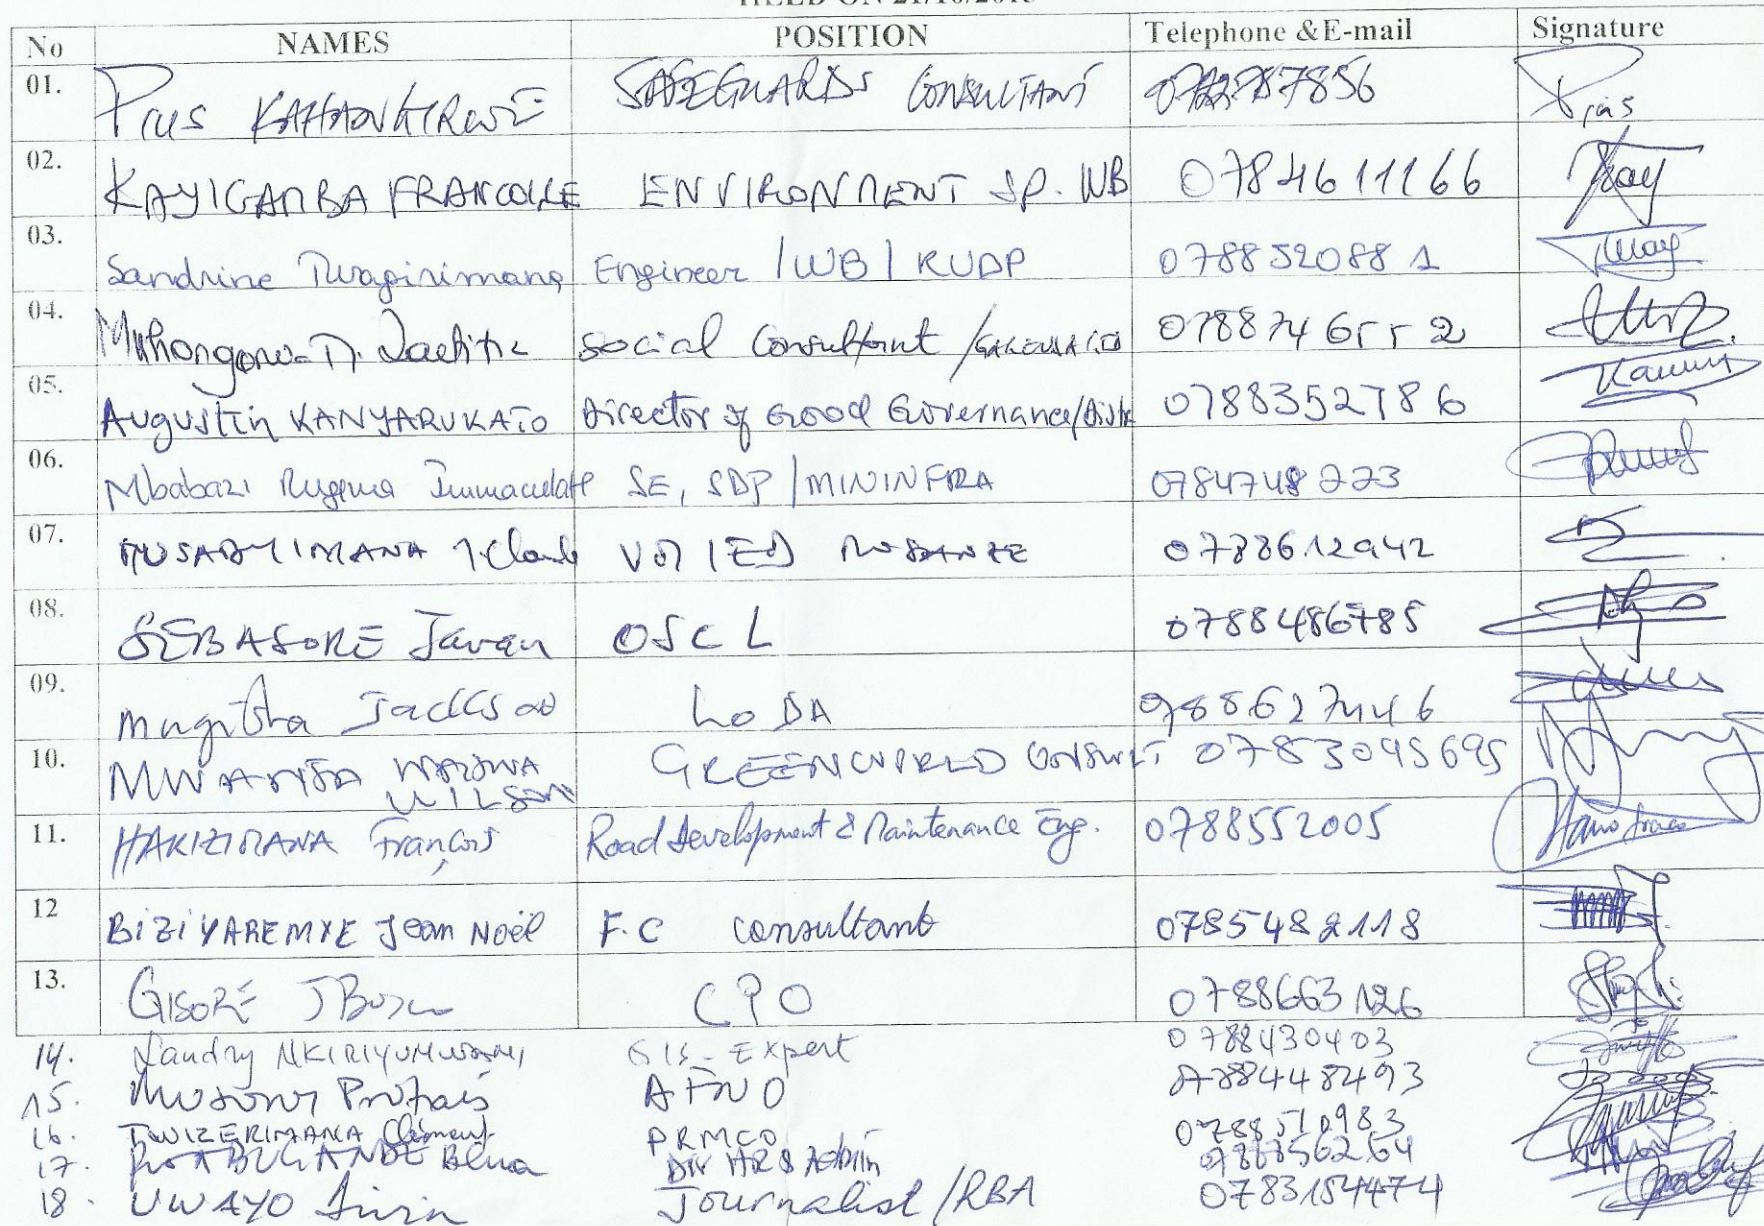 HELD ON 21/10/2015
No NAMES POSITION Telephone & E-mail Signature
01. Pius KAHANGIRWE SAFEGUARDS CONSULTANT Pius
02. KAYIGAMBA FRANCOISE ENVIRONMENT SP. WB 0784611166
03. Sandrine Twagirimana Engineer /WB/ RUDP 0788520881
04. Social Consultant 0788746552
05. Augustin KANYARUKATO Director of Good Governance/ 0788352786
06. Mbabazi Immaculate SE, SDP/MININFRA 0784748223
07. MUSABYIMANA J.Claude 0788612942
08. SEBASORE Javan OSCL 0788486785
09. Mugisha Jackson LODA
10. MWANJA WAISWA WILSON GREENWORLD CONSULT 0783045695
11. HAKIZIMANA François Road Development & Maintenance Eng. 0788552005
12 BIZIYAREMYE Jean Noël F.C consultant 0785482118
13. GISORE JBosco CPO 0788663126
14. Landry NKIRIYUMWAMI GIS-Expert 0788430403
15. Musoni Protais 0788448493
16. TWIZERIMANA Clément PRMCO 0788510983
17.
18. UWAYO Journalist /RBA 0783154474